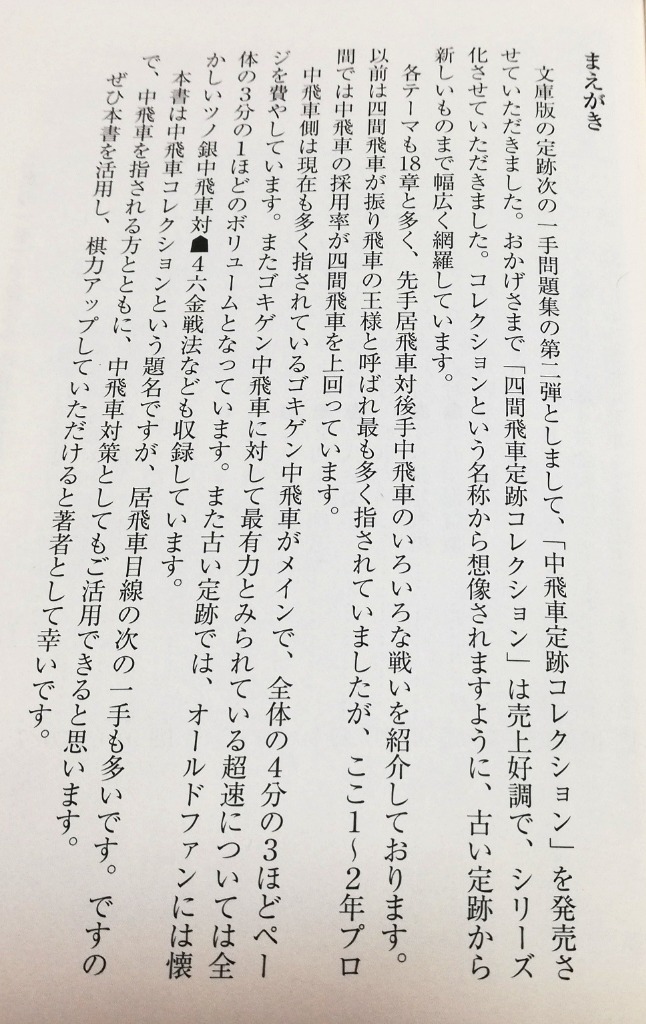 まえがき
文庫版の定跡次の一手問題集の第二弾としまして、「中飛車定跡コレクション」を発売さ
せていただきました。おかげさまで「四間飛車定跡コレクション」は売上好調で、シリーズ
化させていただきました。コレクションという名称から想像されますように、古い定跡から
新しいものまで幅広く網羅しています。
各テーマも18章と多く、先手居飛車対後手中飛車のいろいろな戦いを紹介しております。
以前は四間飛車が振り飛車の王様と呼ばれ最も多く指されていましたが、ここ1～2年プロ
間では中飛車の採用率が四間飛車を上回っています。
中飛車側は現在も多く指されているゴキゲン中飛車がメインで、全体の4分の3ほどペー
ジを費やしています。またゴキゲン中飛車に対して最有力とみられている超速については全
体の3分の1ほどのボリュームとなっています。また古い定跡では、オールドファンには懐
かしいツノ銀中飛車対☗4六金戦法なども収録しています。
本書は中飛車コレクションという題名ですが、居飛車目線の次の一手も多いです。ですの
で、中飛車を指される方とともに、中飛車対策としてもご活用できると思います。
ぜひ本書を活用し、棋力アップしていただけると著者として幸いです。